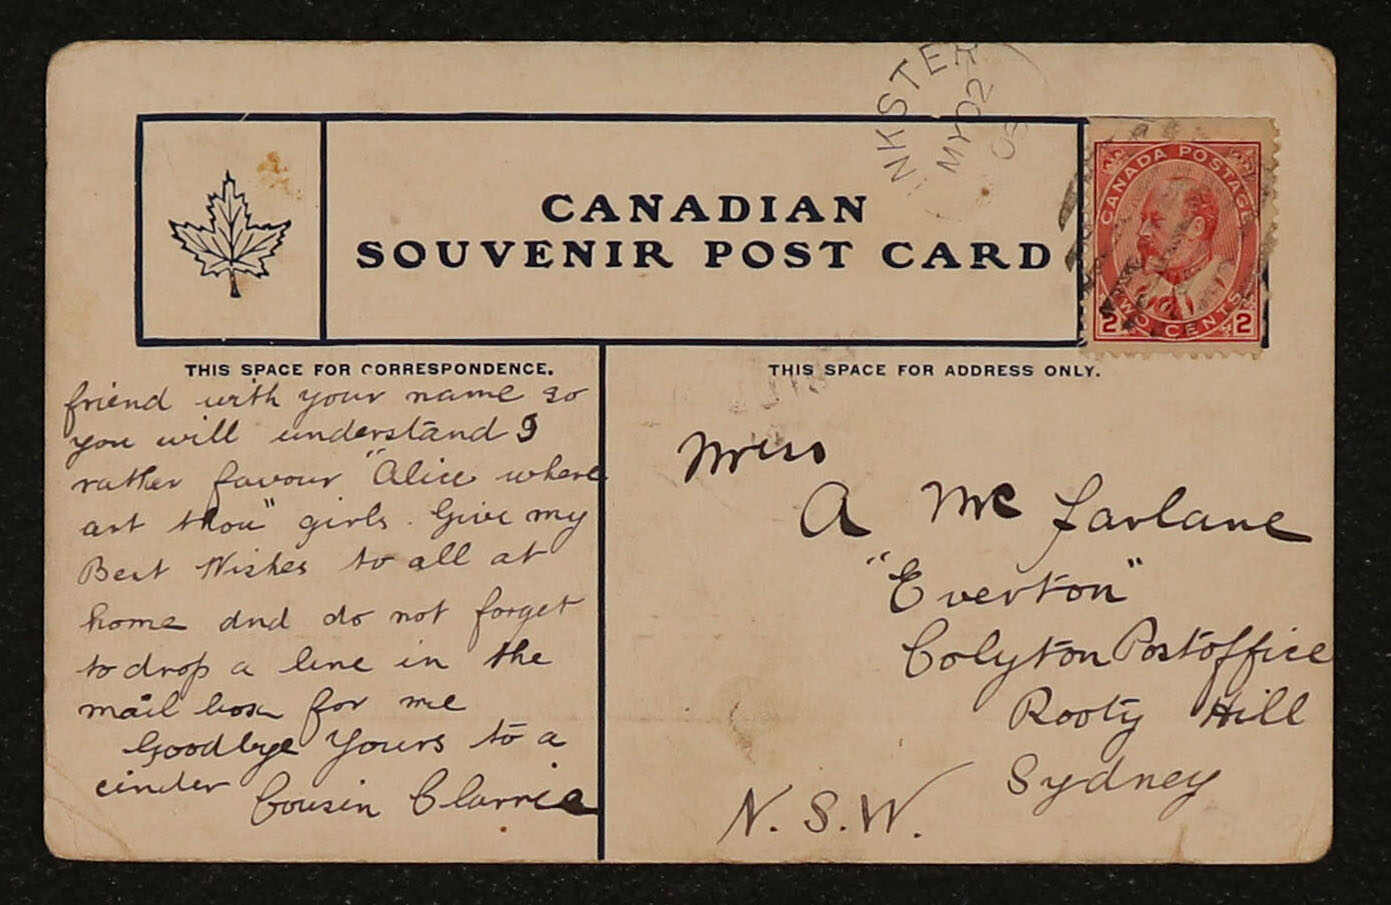 NKSTER
MY 02
CANADIAN
SOUVENIR POST CARD
CANADA POSTAGE
2 TWO CENTS 2
THIS SPACE FOR CORRESPONDENCE.
friend with your name so
you will understand I
rather favour "Alice where
art thou" girls. Give my
Best Wishes to all at
home and do not forget
to drop a line in the
mail box for me
Goodbye Yours to a
cinder Cousin Clarrie
THIS SPACE FOR ADDRESS ONLY.
Miss
A McFarlane
"Everton"
Colyton Postoffice
Rooty Hill
Sydney
N.S.W.